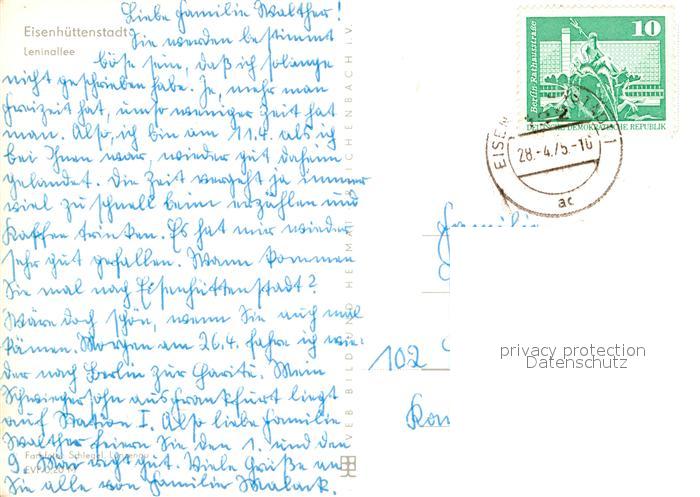 Liebe Familie Walther!
Eisenhüttenstadt
Leninallee
Sie werden bestimmt
böse sein, daß ich solange
nicht geschrieben habe. Je, mehr man
Freizeit hat, umso weniger Zeit hat
man. Also, ich bin am 11.4. als ich
bei Ihnen war, wieder gut daheim
gelandet. Die Zeit vergeht ja immer
viel zu schnell beim erzählen und
Kaffee trinken. Es hat mir wieder
sehr gut gefallen. Wann kommen
Sie mal nach Eisenhüttenstadt?
Wäre doch schön, wenn Sie auch mal
kämen. Morgen am 26.4. fahre ich wie-
der nach Berlin zur Charité. Mein
Schwiegersohn aus Frankfurt liegt
auf Station I. Also liebe Familie
Walther feiern Sie den 1. und den
9. Mai recht gut. Viele Grüße an
Sie alle von Familie
Farbfoto: Schlegel,
VEB BILD UND HEIMAT REICHENBACH i.V.
10
Berlin, Rathausstraße
DEUTSCHE DEMOKRATISCHE REPUBLIK
28.-4.75.-10
ac
Familie
102
privacy protection
Datenschutz